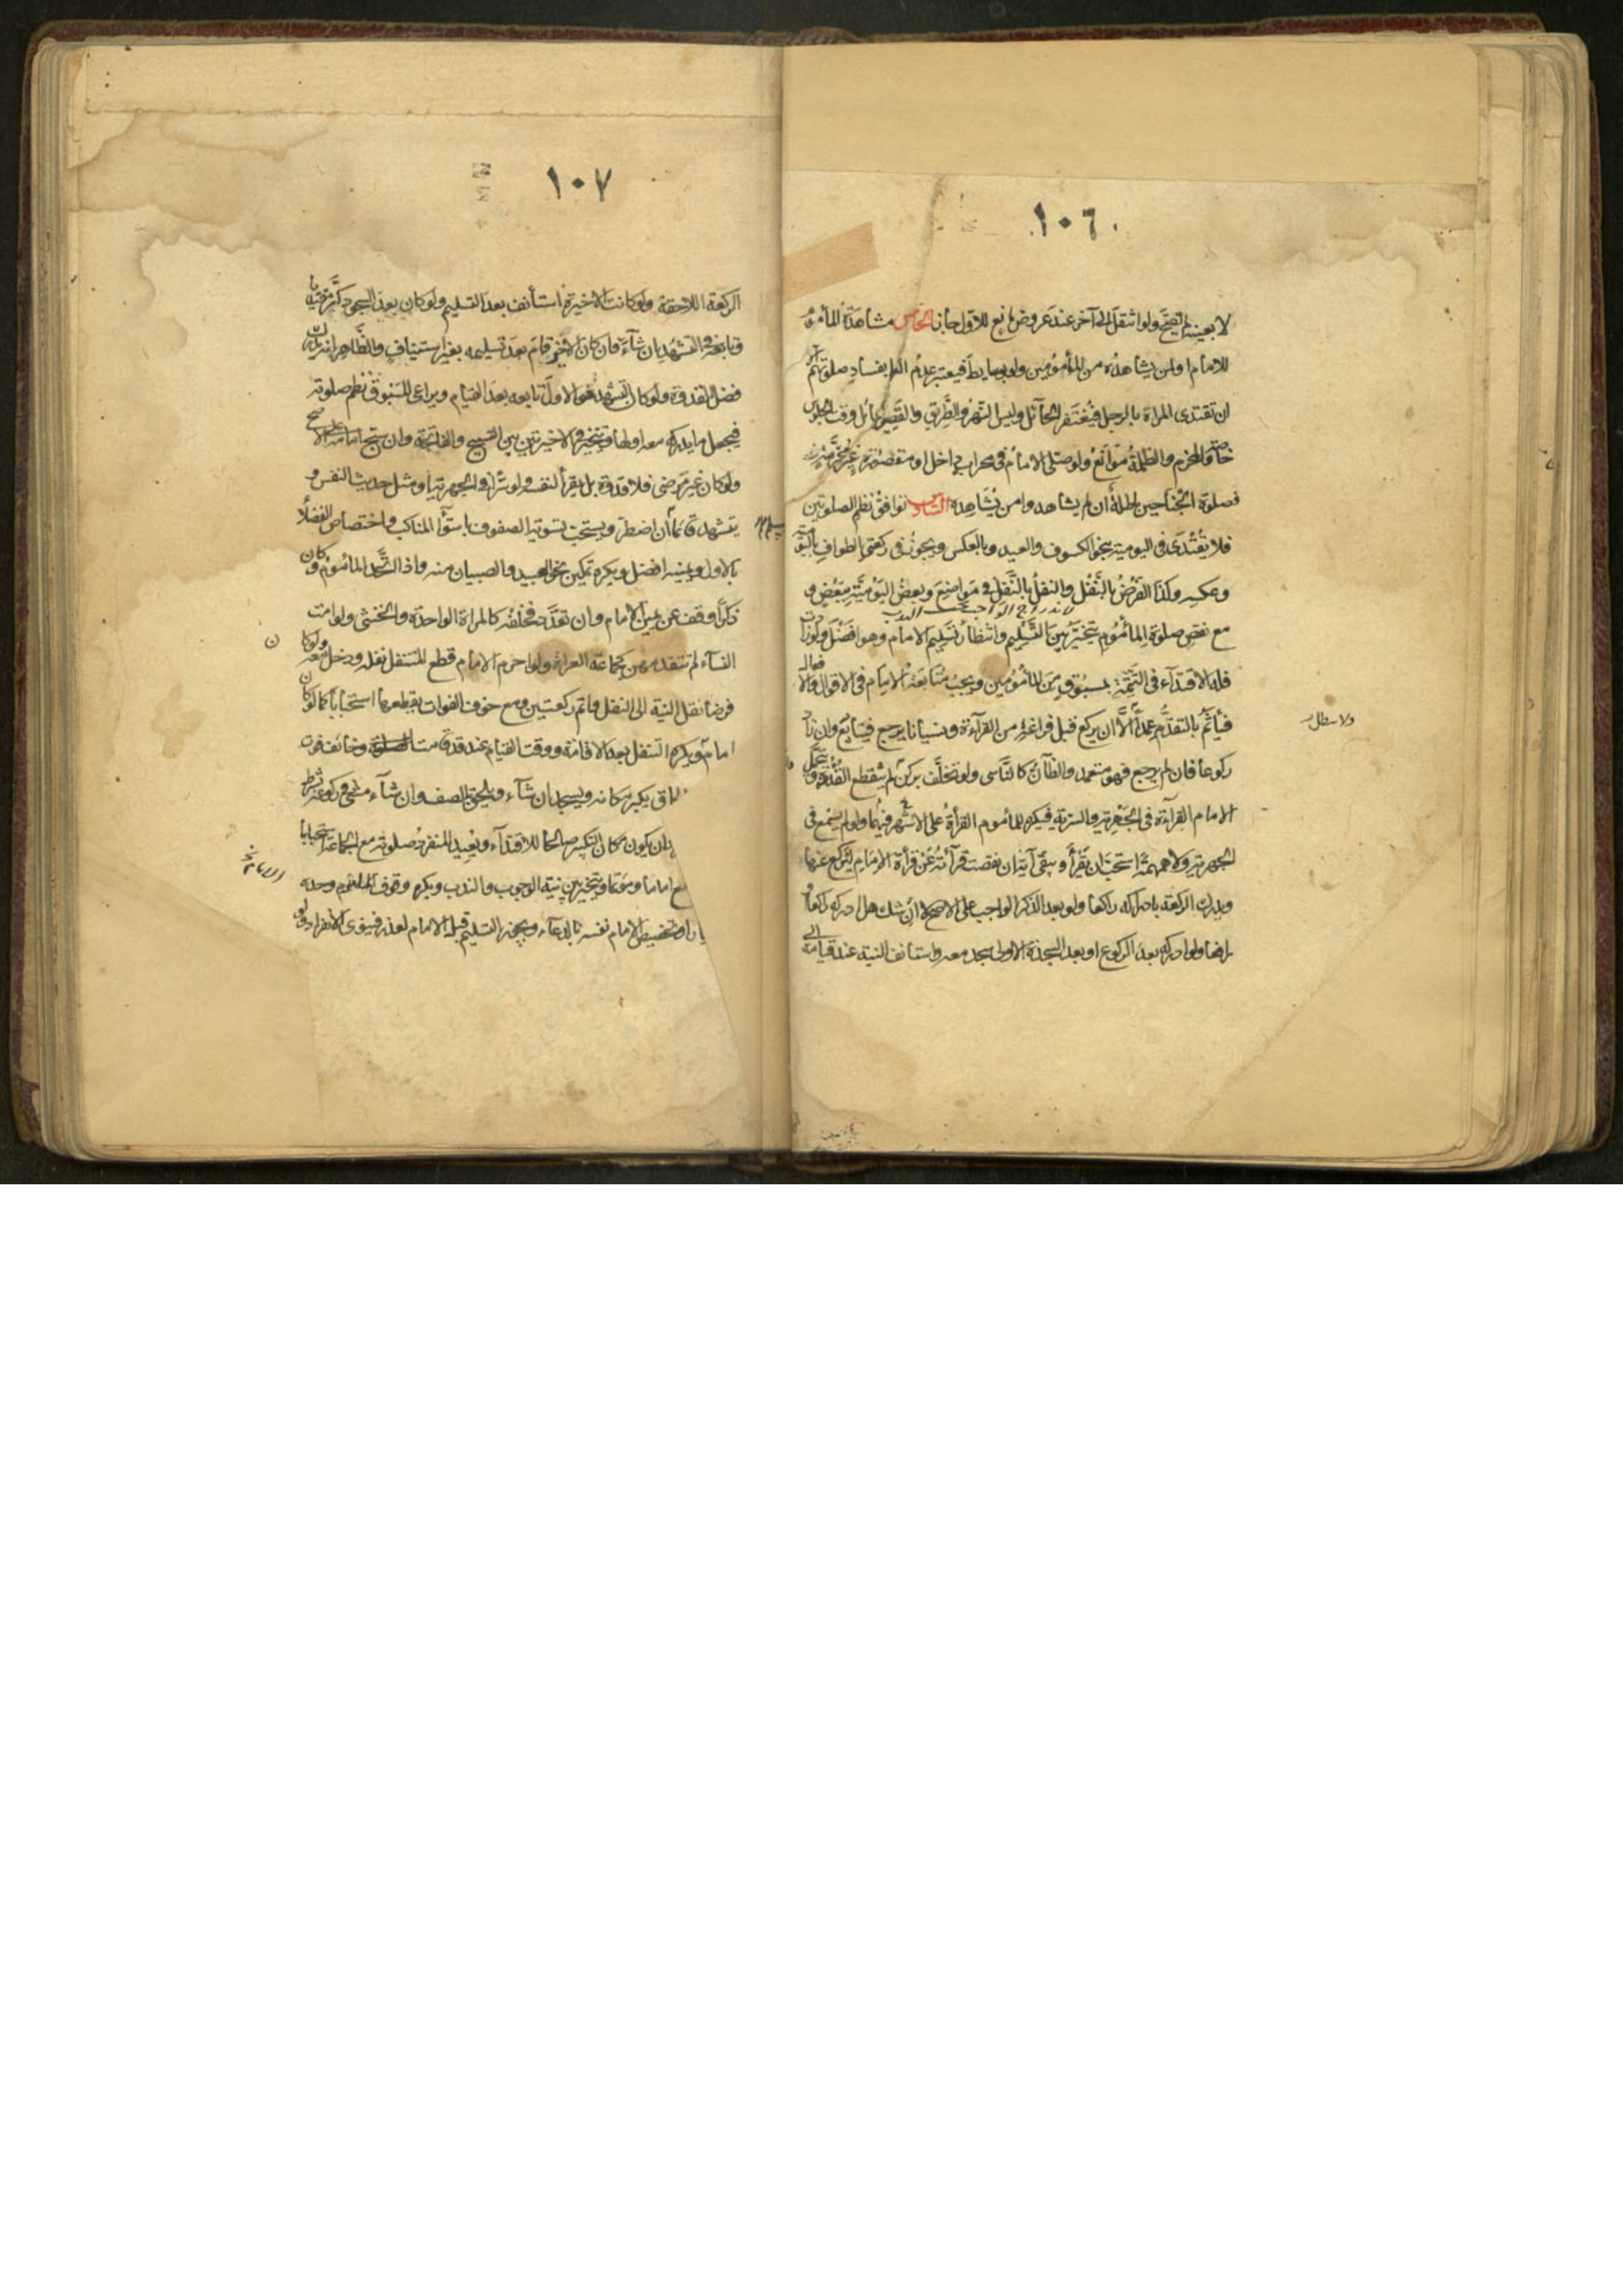 ١٠٦
لا بعينه لم يصح ولو انتقل الى آخر عند عروض مانع للاول جاز الخامس مشاهدة المأموم
للامام او لمن يشاهده من المأمومين ولو بوسايط فيعتبر عدم العلم بفساد صلوتهم
ان تقتدى المراة بالرجل فيغتفر الحآئل وليس النهر والطريق والقصير حائل وقت الجلوس
خاصة والمخرم والظلمة موانع ولو صلى الامام فى محراب داخل او مقصورة غير مخرمة
فصلوة الجناحين باطلة ان لم يشاهدوا من يشاهده السادس توافق نظم الصلوتين
فلا يقتدى فى اليومية بنحو الكسوف والعيد وبالعكس ويجوز فى ركعتى الطواف باليومية
وعكسه وكذا الفرض بالنفل والنفل بالنفل فى مواضع وبعض اليومية ببعض و
مع نقص صلوة المأموم يتخير بين التسليم وانتظار تسليم الامام وهو افضل ولو زادت
فله الاقتدآء فى التتمة بمسبوق من المأمومين ويجب متابعة الامام فى الاقوال والافعال
فيأثم بالتقدم عمداً الا ان يركع قبل فراغه من القرآءة ونسيانا يرجع فيتابع وان زاد
ركوعا فان لم يرجع فهو متعمد والظآن كالناسى ولو تخلف بركن لم ينقطع القدوة ويتحمل
الامام القراءة فى الجهرية والسرية فيكره للمأموم القرأة على الاشهر فيهما ولو لم يسمع فى
الجهرية ولا همهمة استحب ان يقرأ ويبقى آية ان نقصت قرآئته عن قرأة الامام ليركع عنها
ويدرك الركعة بادراكه راكعا ولو بعد الذكر الواجب على الاصح لا ان شك هل ادركه راكعا او
رافعا ولو ادركه بعد الركوع او بعد السجدة الاولى سجد معه واستأنف النية عند قيامه الى
١٠٧
الركعة اللاحقة ولو كانت الاخيرة استأنف بعد التسليم ولو كان بعد السجود كبر
وتابعه فى التشهد ان شآء فان كان الاخير قام بعد تسليمه بغير استيناف والظاهر انه يدرك
فضل القدوة ولو كان التشهد هو الاول تابعه بعد القيام ويراعى المسبوق نظم صلوته
فيجعل ما يدركه معه اولها ويتخير فى الاخيرتين بين التسبيح والفاتحة وان سبح امامه على الاصح
ولو كان غير مرضى فلا قدوة بل يقرأ لنفسه ولو سرا فى الجهرية او مثل حديث النفس و
يتشهد قائماً ان اضطر ويستحب تسوية الصفوف باستوآء المناكب واختصاص الفضلآء
بالاول ويمينه افضل ويكره تمكين نحو العبيد والصبيان منه واذا اتحد المأموم وكان
ذكراً وقف عن يمين الامام وان تعدد فخلفه كالمراة الواحدة والخنثى ولو امت
النسآء لم تتقدمهن كجماعة العراة ولو احرم الامام قطع المتنفل نفله ودخل معه ولو كان
فرضا نقل النية الى النفل واتم ركعتين ومع خوف الفوات يقطعها استحباباً كما لو كان
امام ويكره التنفل بعد الاقامة ووقت القيام عند قد قامت الصلوة وخائف فوت
يكبر مكانه ويسجد ان شآء ويلحق بالصف وان شآء مشى فى ركوعه بشرط
ان يكون مكان التكبير صالحا للاقتدآء ويعيد المنفرد صلوته مع الجماعة استحبابا
اماما ومؤتما ويتخير بين نية الوجوب والندب ويكره وقوف المأموم وحده
وتخصيص الامام نفسه بالدعآء ويجوز التسليم قبل الامام لعذر فينوى الانفراد ولو